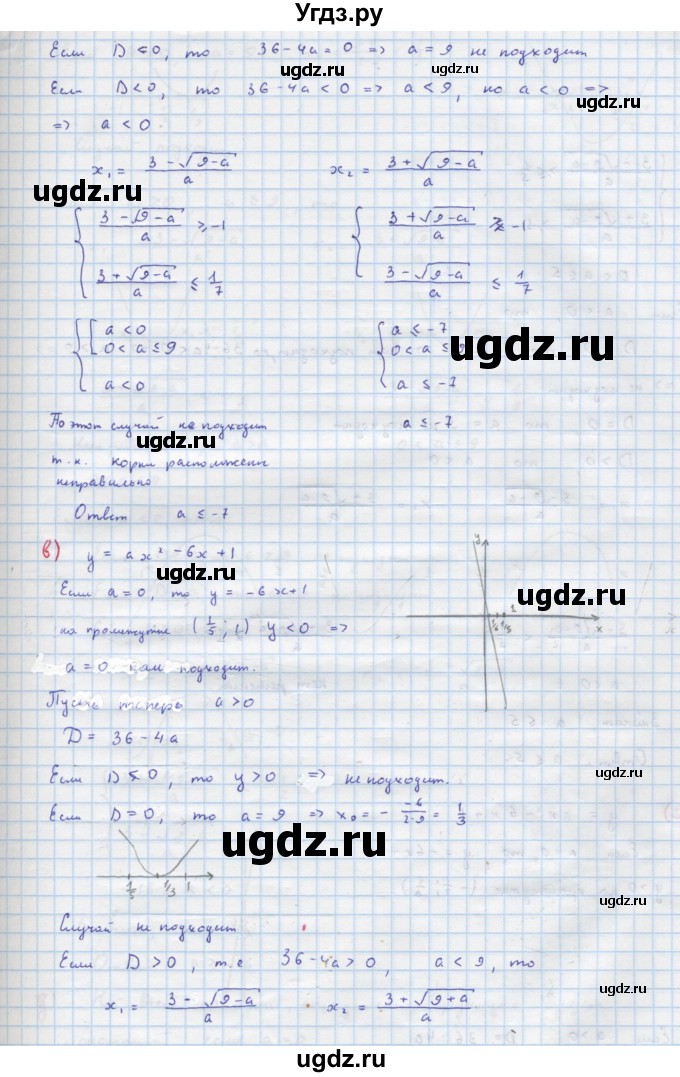 Угдз.ру
Если D = 0, то 36-4a = 0 => a = 9 не подходит
ugdz.ru ugdz.ru
Если D<0, то 36-4a < 0 => a<9, но a<0 =>
ugdz.ru
=> a < 0.
x₁ = (3 - √(9-a))/a x₂ = (3 + √(9-a))/a
ugdz.ru ugdz.ru
{ (3 - √(9-a))/a ≥ -1 { (3 + √(9-a))/a ≥ -1
ugdz.ru
(3 + √(9-a))/a ≤ 1/7 (3 - √(9-a))/a ≤ 1/7
ugdz.ru
{ [ a < 0 { a ≤ -7
0 < a ≤ 9 0 < a ≤ 9
ugdz.ru
a < 0 a ≤ -7
ugdz.ru
По этот случай не подходит a ≤ -7
ugdz.ru
т.к. корни расположены
неправильно
Ответ a ≤ -7
ugdz.ru
в) y = ax² - 6x + 1
ugdz.ru
y
Если a=0, то y = -6x+1
ugdz.ru
1
1/6 1/5 x
на промежутке (1/5; 1) y<0 =>
ugdz.ru
a = 0 нам подходит.
Пусть теперь a>0
ugdz.ru
D = 36 - 4a
ugdz.ru
Если D < 0, то y>0 => не подходит.
ugdz.ru
Если D = 0, то a = 9 => x₀ = - -6/2·9 = 1/3
ugdz.ru
1/5 1/3 1
ugdz.ru
Случай не подходит
ugdz.ru
Если D > 0, т.е 36-4a > 0, a < 9, то
ugdz.ru
x₁ = (3 - √(9-a))/a x₂ = (3 + √(9+a))/a
ugdz.ru ugdz.ru
ugdz.ru